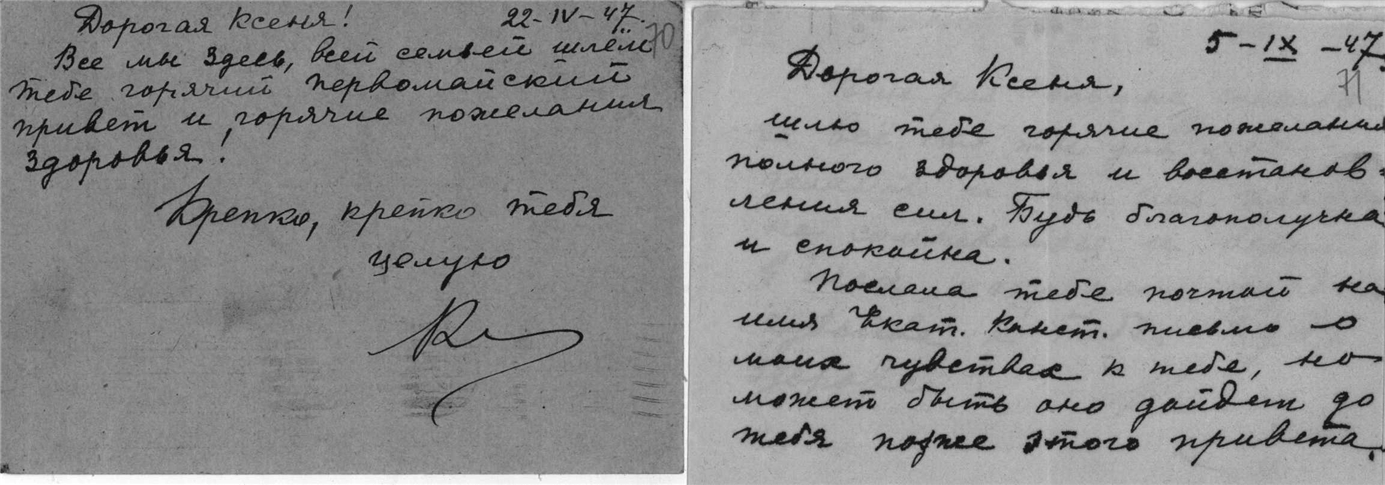 Дорогая Ксеня! 22-IV-47.
70
Все мы здесь, всей семьей шлём
тебе горячий первомайский
привет и горячие пожелания
здоровья!
Крепко, крепко тебя
целую
5-IX-47.
71
Дорогая Ксеня,
шлю тебе горячие пожелания
полного здоровья и восстанов-
ления сил. Будь благополучна
и спокойна.
Послала тебе почтой на
имя Екат. Конст. письмо о
моих чувствах к тебе, но
может быть оно дойдет до
тебя позже этого привета.